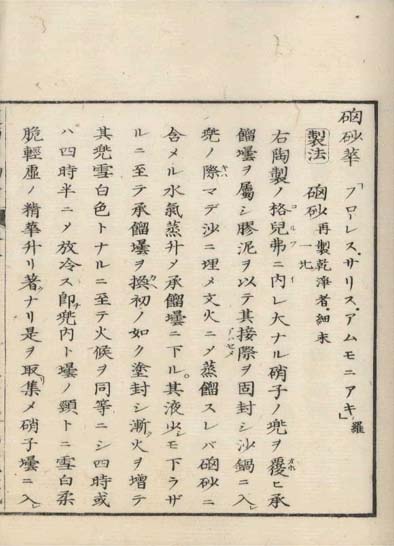 硇砂華「フローレス、サリス、アムモニアキ」羅
製法 硇砂再製乾淨者、細末一七
右陶製ノ格兒弗ニ内レ大ナル硝子ノ兜ヲ覆ヒ承
餾壜ヲ屬シ膠泥ヲ以テ其接際ヲ固封シ沙鍋ニ入
兜ノ際マデ沙ニ埋メ文火ニメ蒸餾スレバ硇砂ニ
含メル水氣蒸升ノ承餾壜ニ下ル其液少シモ下ラザ
ルニ至テ承餾壜ヲ換初ノ如ク塗封シ漸火ヲ增テ
其兜雪白色トナルニ至テ火候ヲ同等ニシ四時或
ハ四時半ニメ放冷ス即兜内ト壜ノ頸トニ雪白柔
脆輕虛ノ精華升リ著ナリ是ヲ取集メ硝子壜ニ入